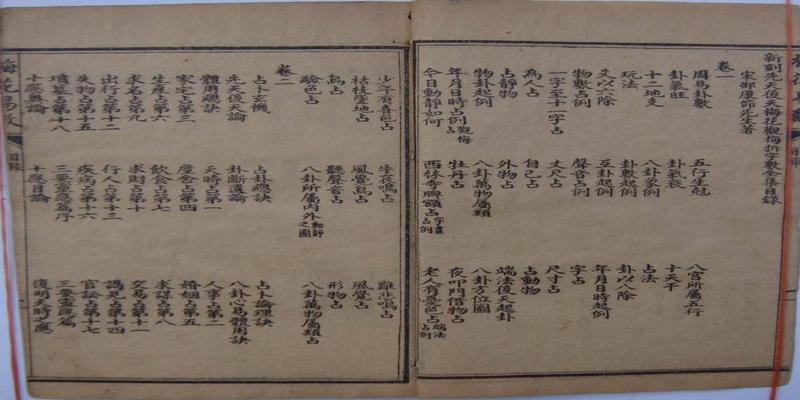 新刻先天後天梅花觀梅拆字數全集目錄
宋邵康節先生著
卷一
周易卦數 五行生剋 八宮所屬五行
卦氣旺 卦氣衰 十天干
十二地支 八卦象例 占法
玩法 卦數起例 卦以八除
爻以六除 互卦起例 年月日時起例
物數占例 聲音占例 字占
一字至十一字占 丈尺占 尺寸占
為人占 自己占 占動物
占靜物 外物占 端法後天起卦
物卦起例 八卦萬物屬類 八卦方位圖
年月日時占例觀梅占 牡丹占 夜叩門借物占
今日動靜如何 西林寺牌額占字畫占例 老人有憂色占端法占例
少年有喜色占 牛哀鳴占 雞悲鳴占
枯枝墜地占 風覺鳥占 風覺占
鳥占 聽聲音占 形物占
驗色占 八卦所屬內外動靜之圖 八卦萬物屬類占
卷二
占卜玄機 占卦總訣 占卜論理訣
先天後天論 卦斷遺論 八卦心易體用訣
體用總訣 天時占第一 人事占第二
家宅占第三 屋舍占第四 婚姻占第五
生產占第六 飲食占第七 求謀占第八
求名占第九 求財占第十 交易占第十一
出行占第十二 行人占第十三 謁見占第十四
失物占第十五 疾病占第十六 官訟占第十七
墳墓占第十八 三要靈應篇序 三要靈應篇
十應奧論 十應目論 復明天時之應
梅花易數
目錄